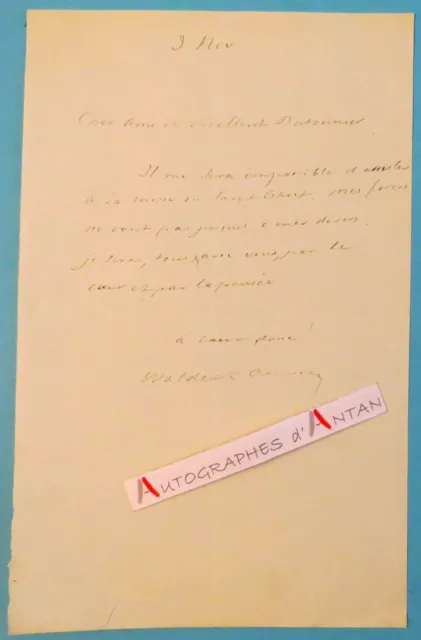 3 Nov
Cher Ami et excellent Batonnier
Il me sera impossible d'assister
à la messe du Saint Esprit. mes forces
ne vont pas jusques à mes desirs.
je serai, tous avec vous, par le
cœur et par la pensée
à vous donc !
Waldeck Rousseau
AUTOGRAPHES d'ANTAN